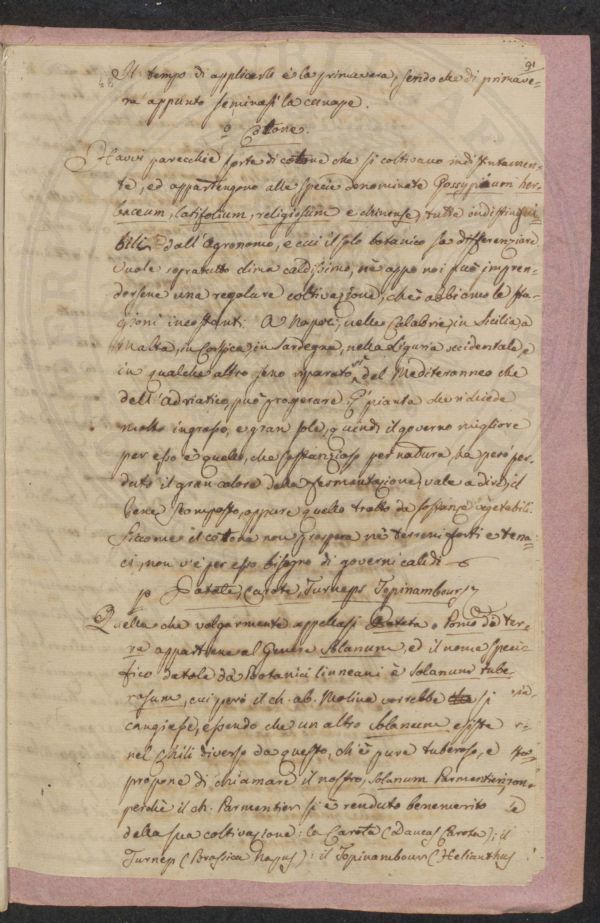 91
Il tempo di applicarli è la primavera, sendoche di primave-
ra appunto seminasi la canape.
o Cotone.
Havvi parecchie sorte di cotone che si coltivano indistintamen-
te, ed appartengono alle specie denominate Gossypium her-
baceum, latifolium, religiosum e chinense, tutte indistingui-
bili dall'Agronomo, e cui il solo botanico sa differenziare
Vuole sopratutto clima caldissimo, nè appo noi può impren-
dersene una regolare coltivazione, chè abbiamo le sta-
gioni incostanti. A Napoli, nelle Calabrie, in Sicilia, a
Malta, in Corsica, in Sardegna, nella Liguria occidentale, e
in qualche altro seno riparato del Mediteranneo che
dell'Adriatico, può prosperare. È pianta che richiede
molto ingrasso, e gran sole, quindi il governo migliore
per esso è quello, che sostanzioso per natura ha però per-
duto il gran calore della fermentazione, vale a dire, il
bene scomposto, oppure quello tratto da sostanze vegetabili.
Siccome il cotone non prospera nè terreni forti e tena-
ci, non v'è per esso bisogno di governi caldi.
p Patate, Carote, Turneps, Topinambours
Quella che volgarmente appellasi Patata o Pomo di ter-
ra appartiene al Genere Solanum, ed il nome speci-
fico datole da Botanici linneani è Solanum tube-
rosum, cui però il ch. ab. Molina vorrebbe si
cangiasse, essendo che un altro Solanum esiste
nel Chili diverso da questo, ch'è pure tuberoso, e
propone di chiamare il nostro, Solanum Parmentierii
perchè il ch. Parmentier si è renduto benemerito
della sua coltivazione: la Carota (Daucus Carota): il
Turnep (Brassica Napus): il Topinambour (Helianthus